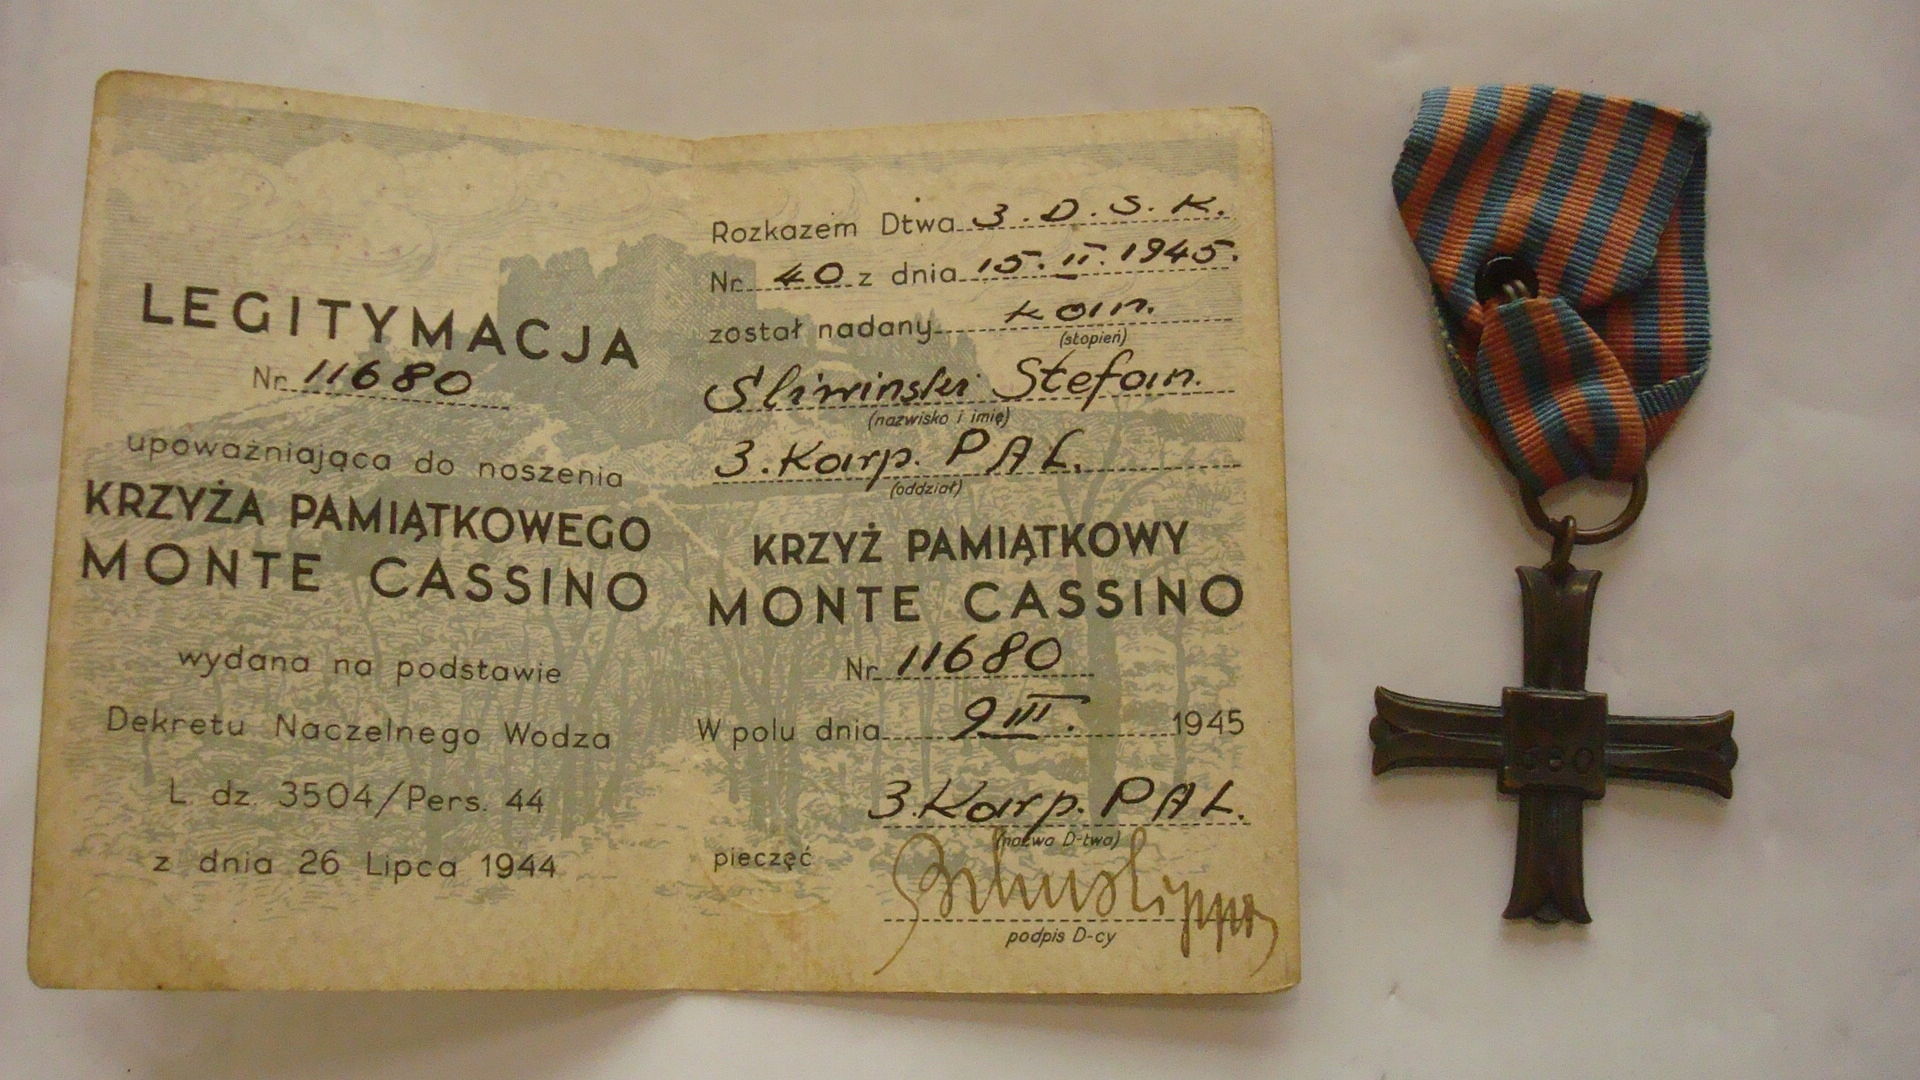 LEGITYMACJA
Nr. 11680
upoważniająca do noszenia
KRZYŻA PAMIĄTKOWEGO
MONTE CASSINO
wydana na podstawie
Dekretu Naczelnego Wodza
L. dz. 3504/Pers. 44
z dnia 26 Lipca 1944
Rozkazem Dtwa 3. D. S. K.
Nr. 40 z dnia 15. II. 1945.
został nadany kan.
(stopień)
Śliwiński Stefan.
(nazwisko i imię)
3. Karp. PAL.
(oddział)
KRZYŻ PAMIĄTKOWY
MONTE CASSINO
Nr. 11680
W polu dnia 9 III. 1945
3. Karp. PAL.
(nazwa D-twa)
pieczęć
podpis D-cy